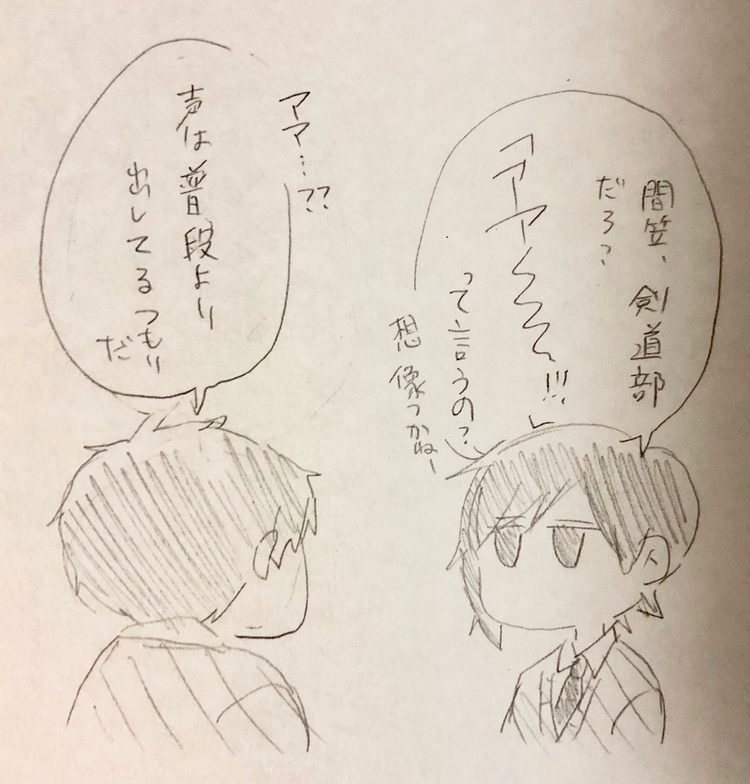 間笠、剣道部
だろ?
「アーアァァァ、!!!」
って言うの?
想像つかねー
アマ…??
声は普段より
出してるつもり
だ